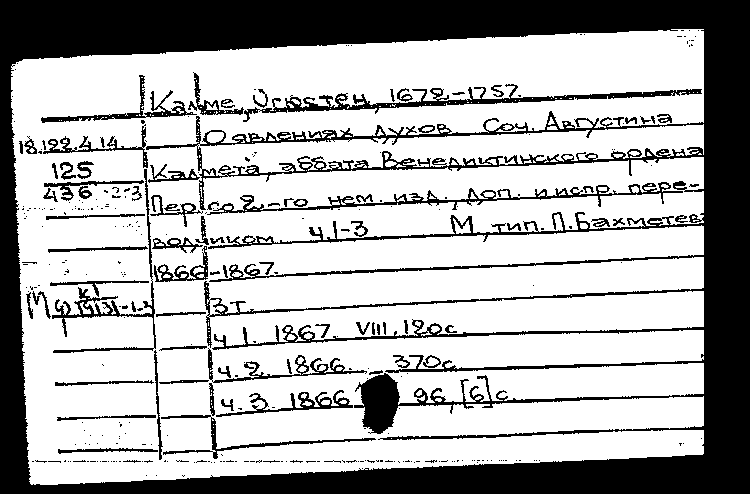 Калме, Огюстен, 1672-1757.
18.122.4.14. О явлениях духов Соч. Августина
125 Калмета, аббата Венедиктинского ордена
436 -2-3 Пер. со 2-го нем. изд., доп. и испр. пере-
водчиком. ч.1-3 М, тип. П. Бахметев
1866-1867.
3 т.
ч 1. 1867. VIII, 120 с.
ч. 2. 1866. 370 с
ч. 3. 1866 96, [6] с.